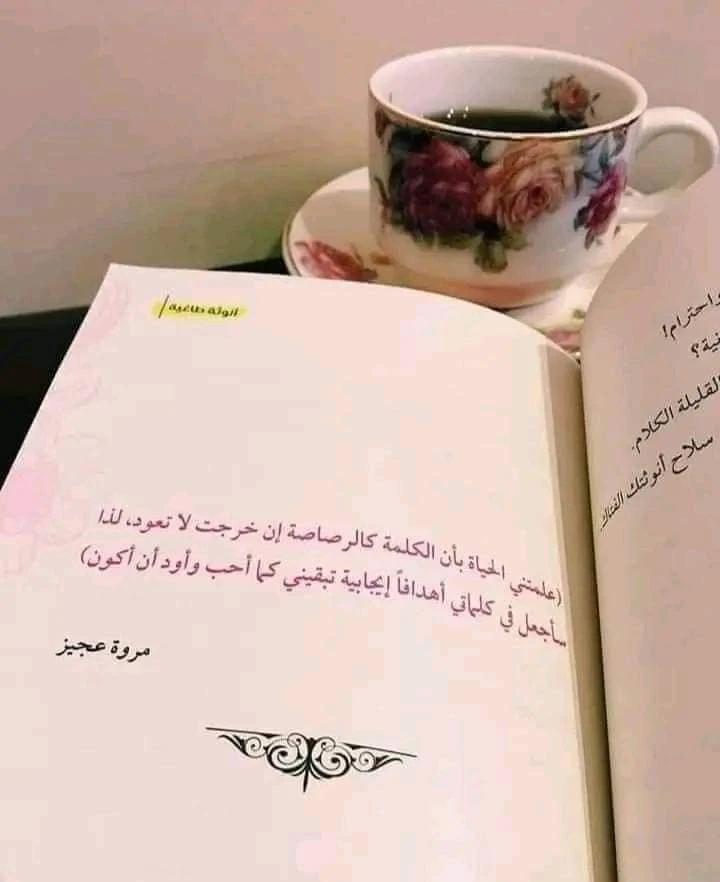 أنوثة طاغية
(علمتني الحياة بأن الكلمة كالرصاصة إن خرجت لا تعود، لذا
سأجعل في كلماتي أهدافاً إيجابية تبقيني كما أحب وأود أن أكون)
مروة عجيز
واحترام!
القليلة الكلام.
سلاح أنوثتك الفتاك